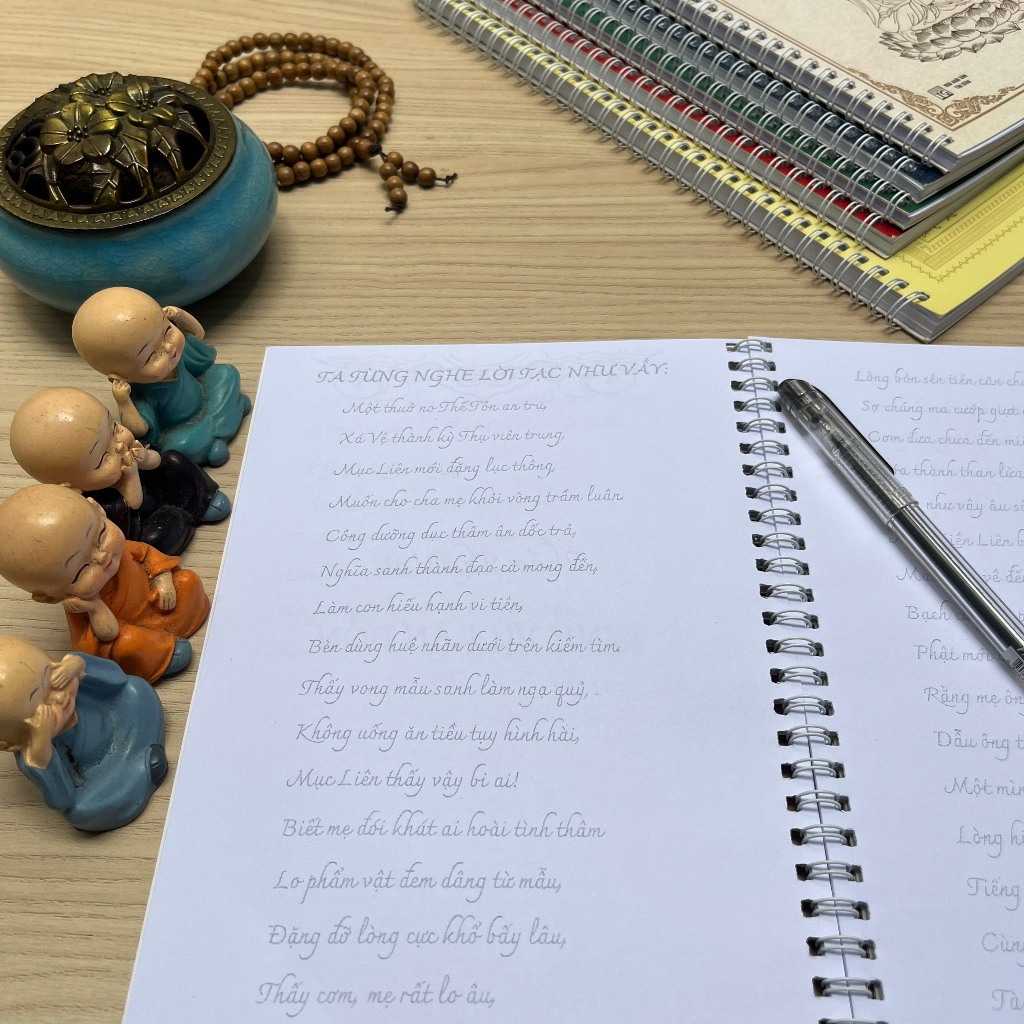 TA TỪNG NGHE LỜI TẠC NHƯ VẦY:
Một thuở nọ Thế Tôn an trụ,
Xá Vệ thành kỳ Thụ viên trung,
Mục Liên mới đặng lục thông,
Muốn cho cha mẹ khỏi vòng trầm luân.
Công dưỡng dục thâm ân dốc trả,
Nghĩa sanh thành đạo cả mong đền,
Làm con hiếu hạnh vi tiên,
Bèn dùng huệ nhãn dưới trên kiếm tìm.
Thấy vong mẫu sanh làm ngạ quỷ,
Không uống ăn tiều tụy hình hài,
Mục Liên thấy vậy bi ai!
Biết mẹ đói khát ai hoài tình thâm
Lo phẩm vật đem dâng từ mẫu,
Đặng đỡ lòng cực khổ bấy lâu,
Thấy cơm, mẹ rất lo âu,
Lòng bỏn sẻn tiền căn
Sợ chúng ma cướp giựt
Cơm đưa chưa đến
thành than lửa
như vậy âu
Liên
về
Bạch
Phật
Rằng mẹ
Dẫu ông
Một
Lòng
Tiếng